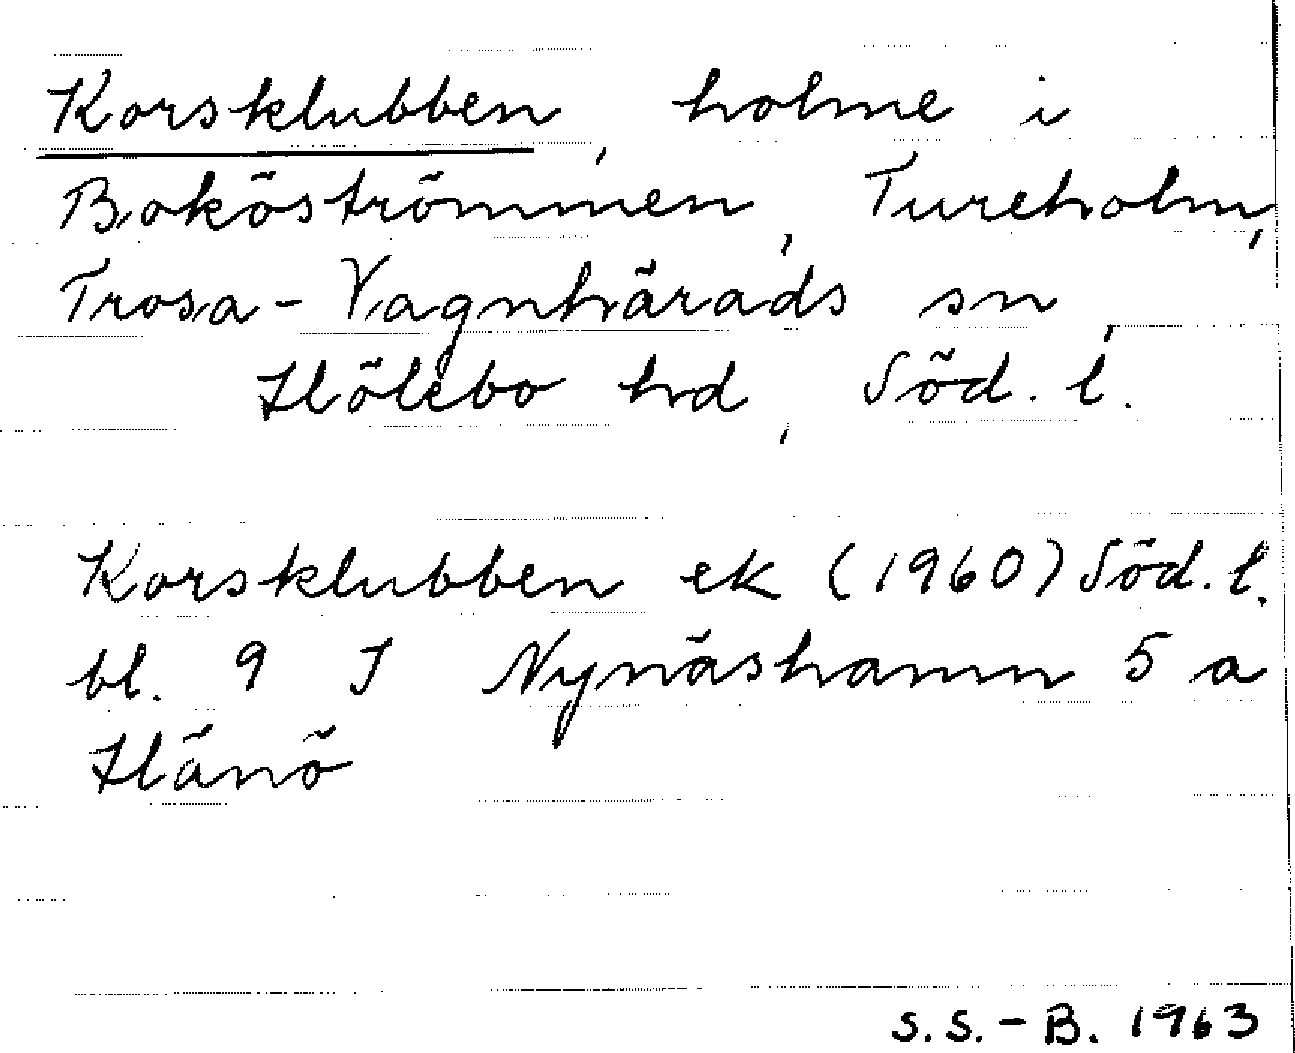 Korsklubben, holme i
Boköströmmen, Tureholm,
Trosa-Vagnhärads sn,
Hölebo hd, Söd. l.
Korsklubben ek (1960) Söd. l.
bl. 9 I Nynäshamn 5 a
Hänö
S.S.-B. 1963